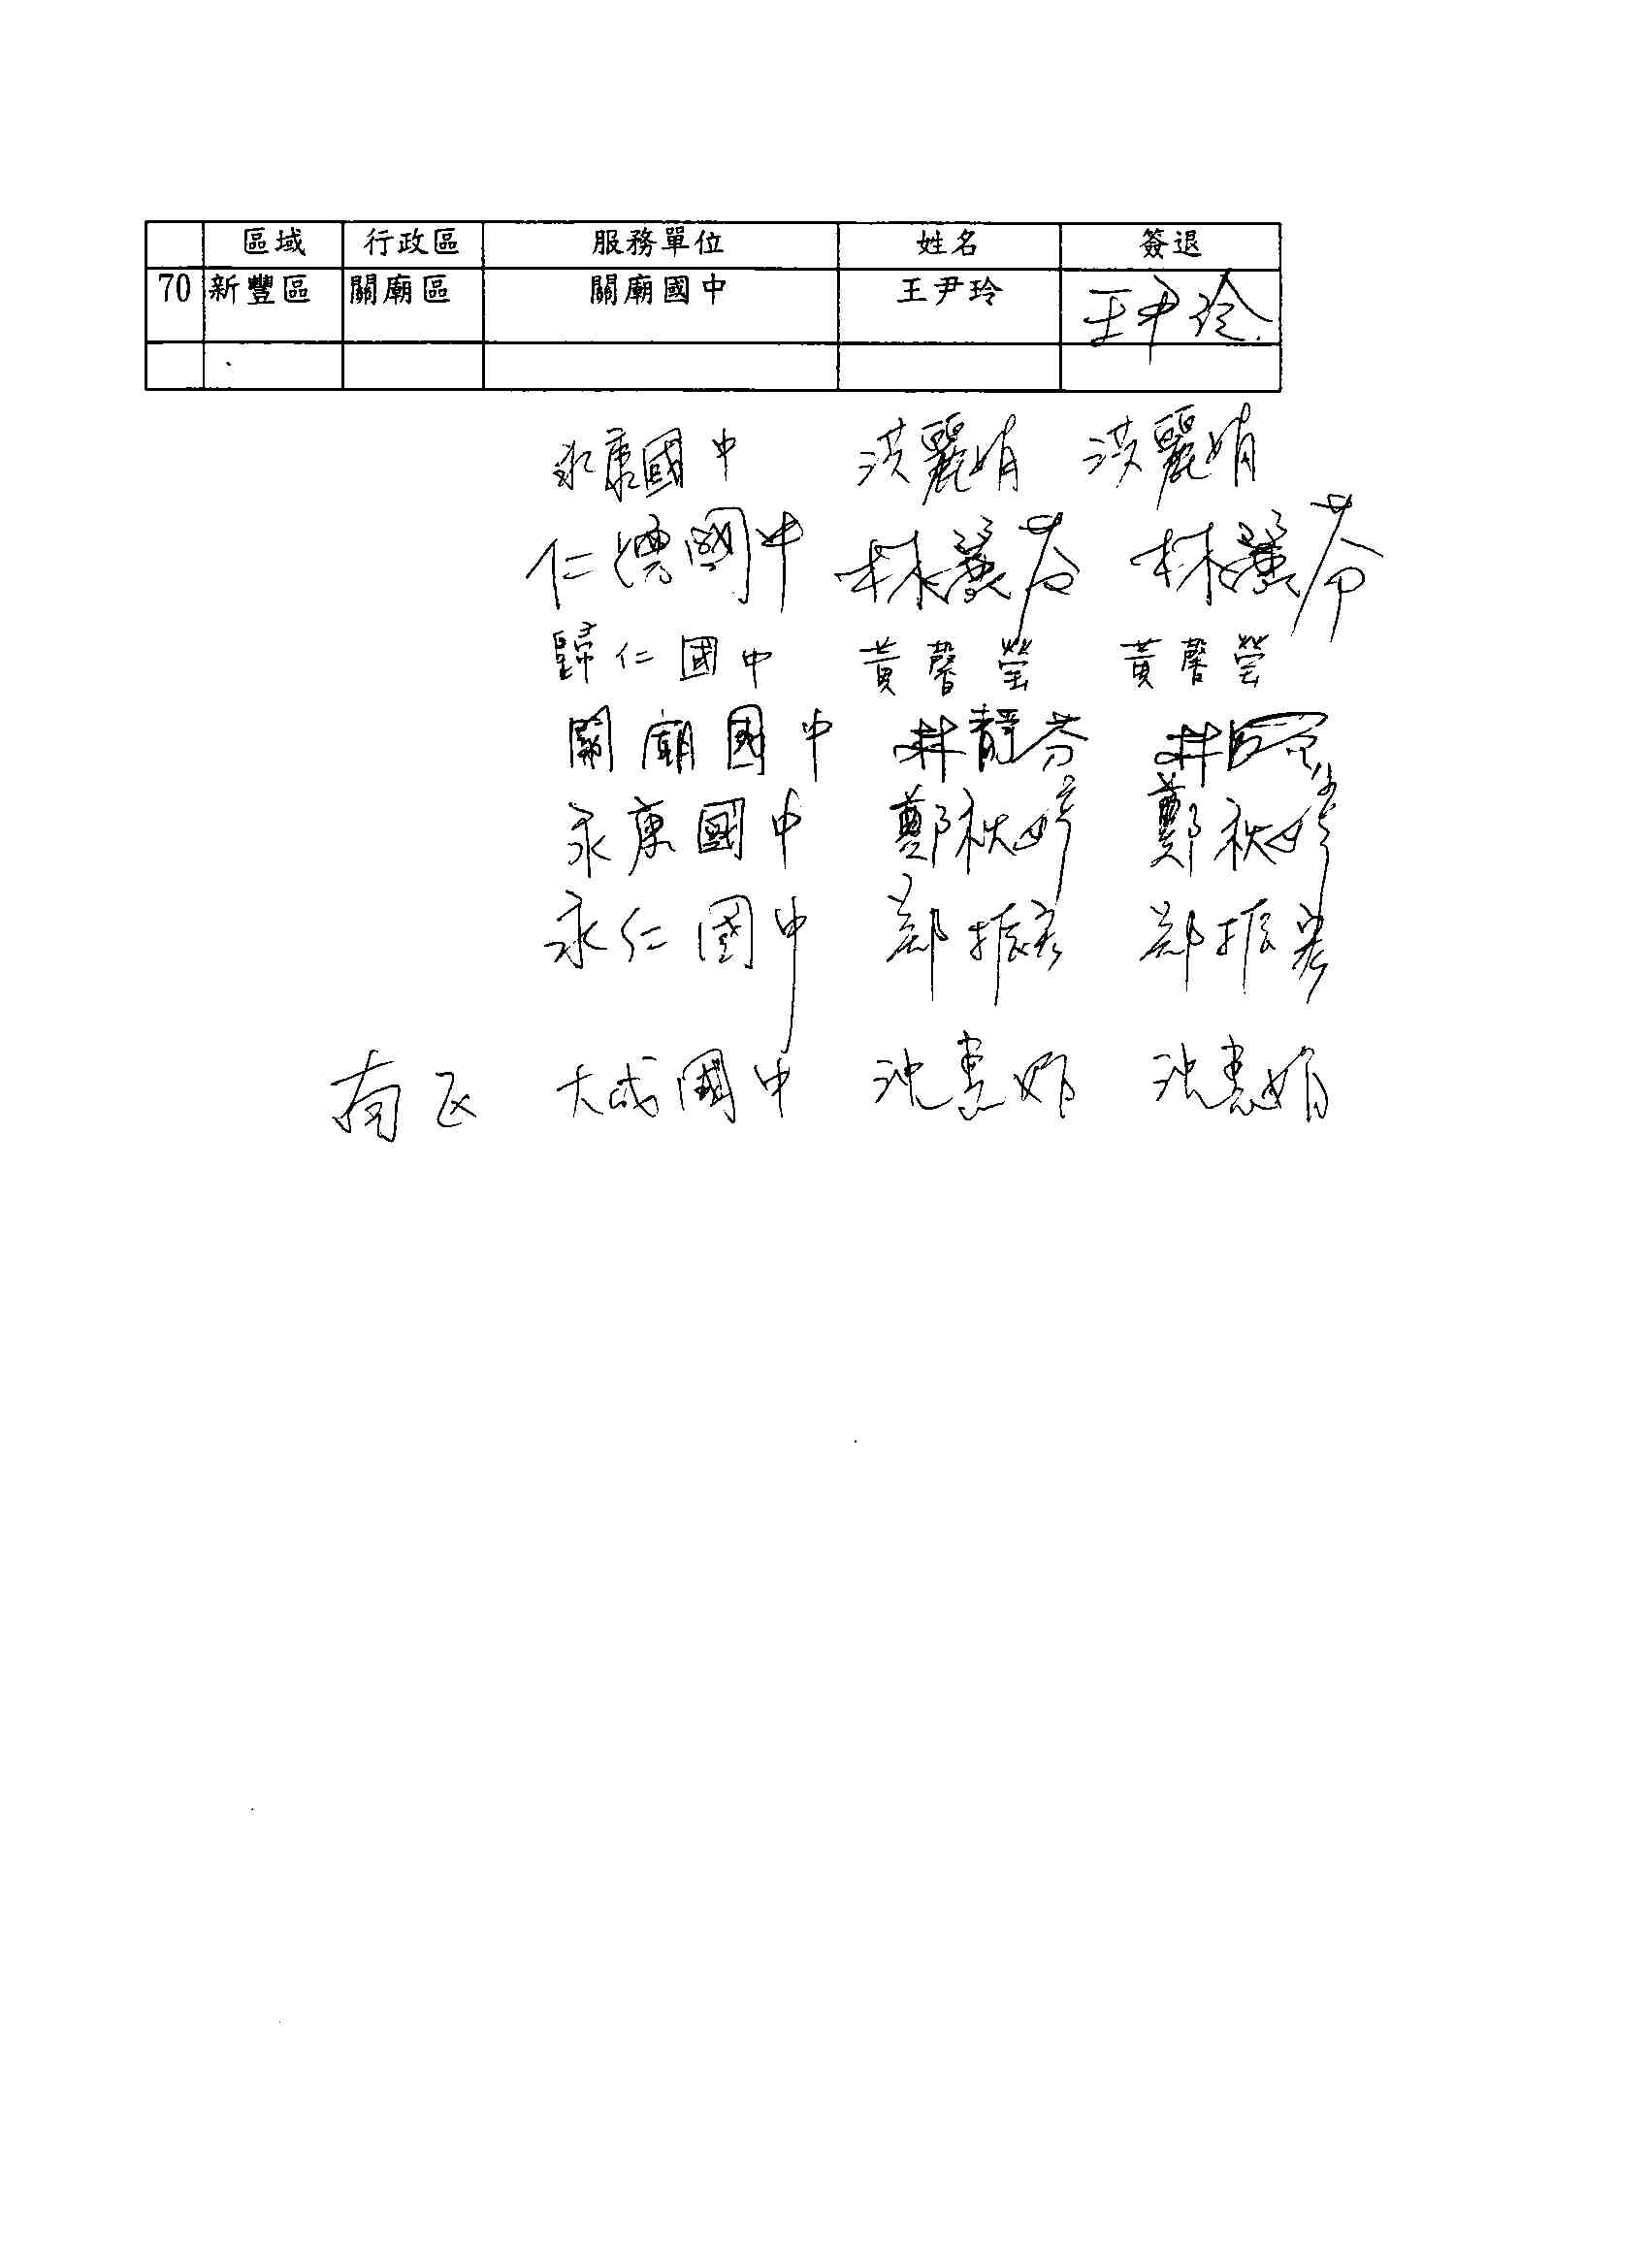 區域 行政區 服務單位 姓名 簽退
70 新豐區 關廟區 關廟國中 王尹玲 王尹玲
永康國中 洪麗娟 洪麗娟
仁德國中 林麗芬 林麗芬
歸仁國中 黃馨瑩 黃馨瑩
關廟國中 林靜芬
永康國中 鄭秋婷 鄭秋婷
永仁國中 鄭振宏 鄭振宏
南区 大成國中 沈惠娟 沈惠娟